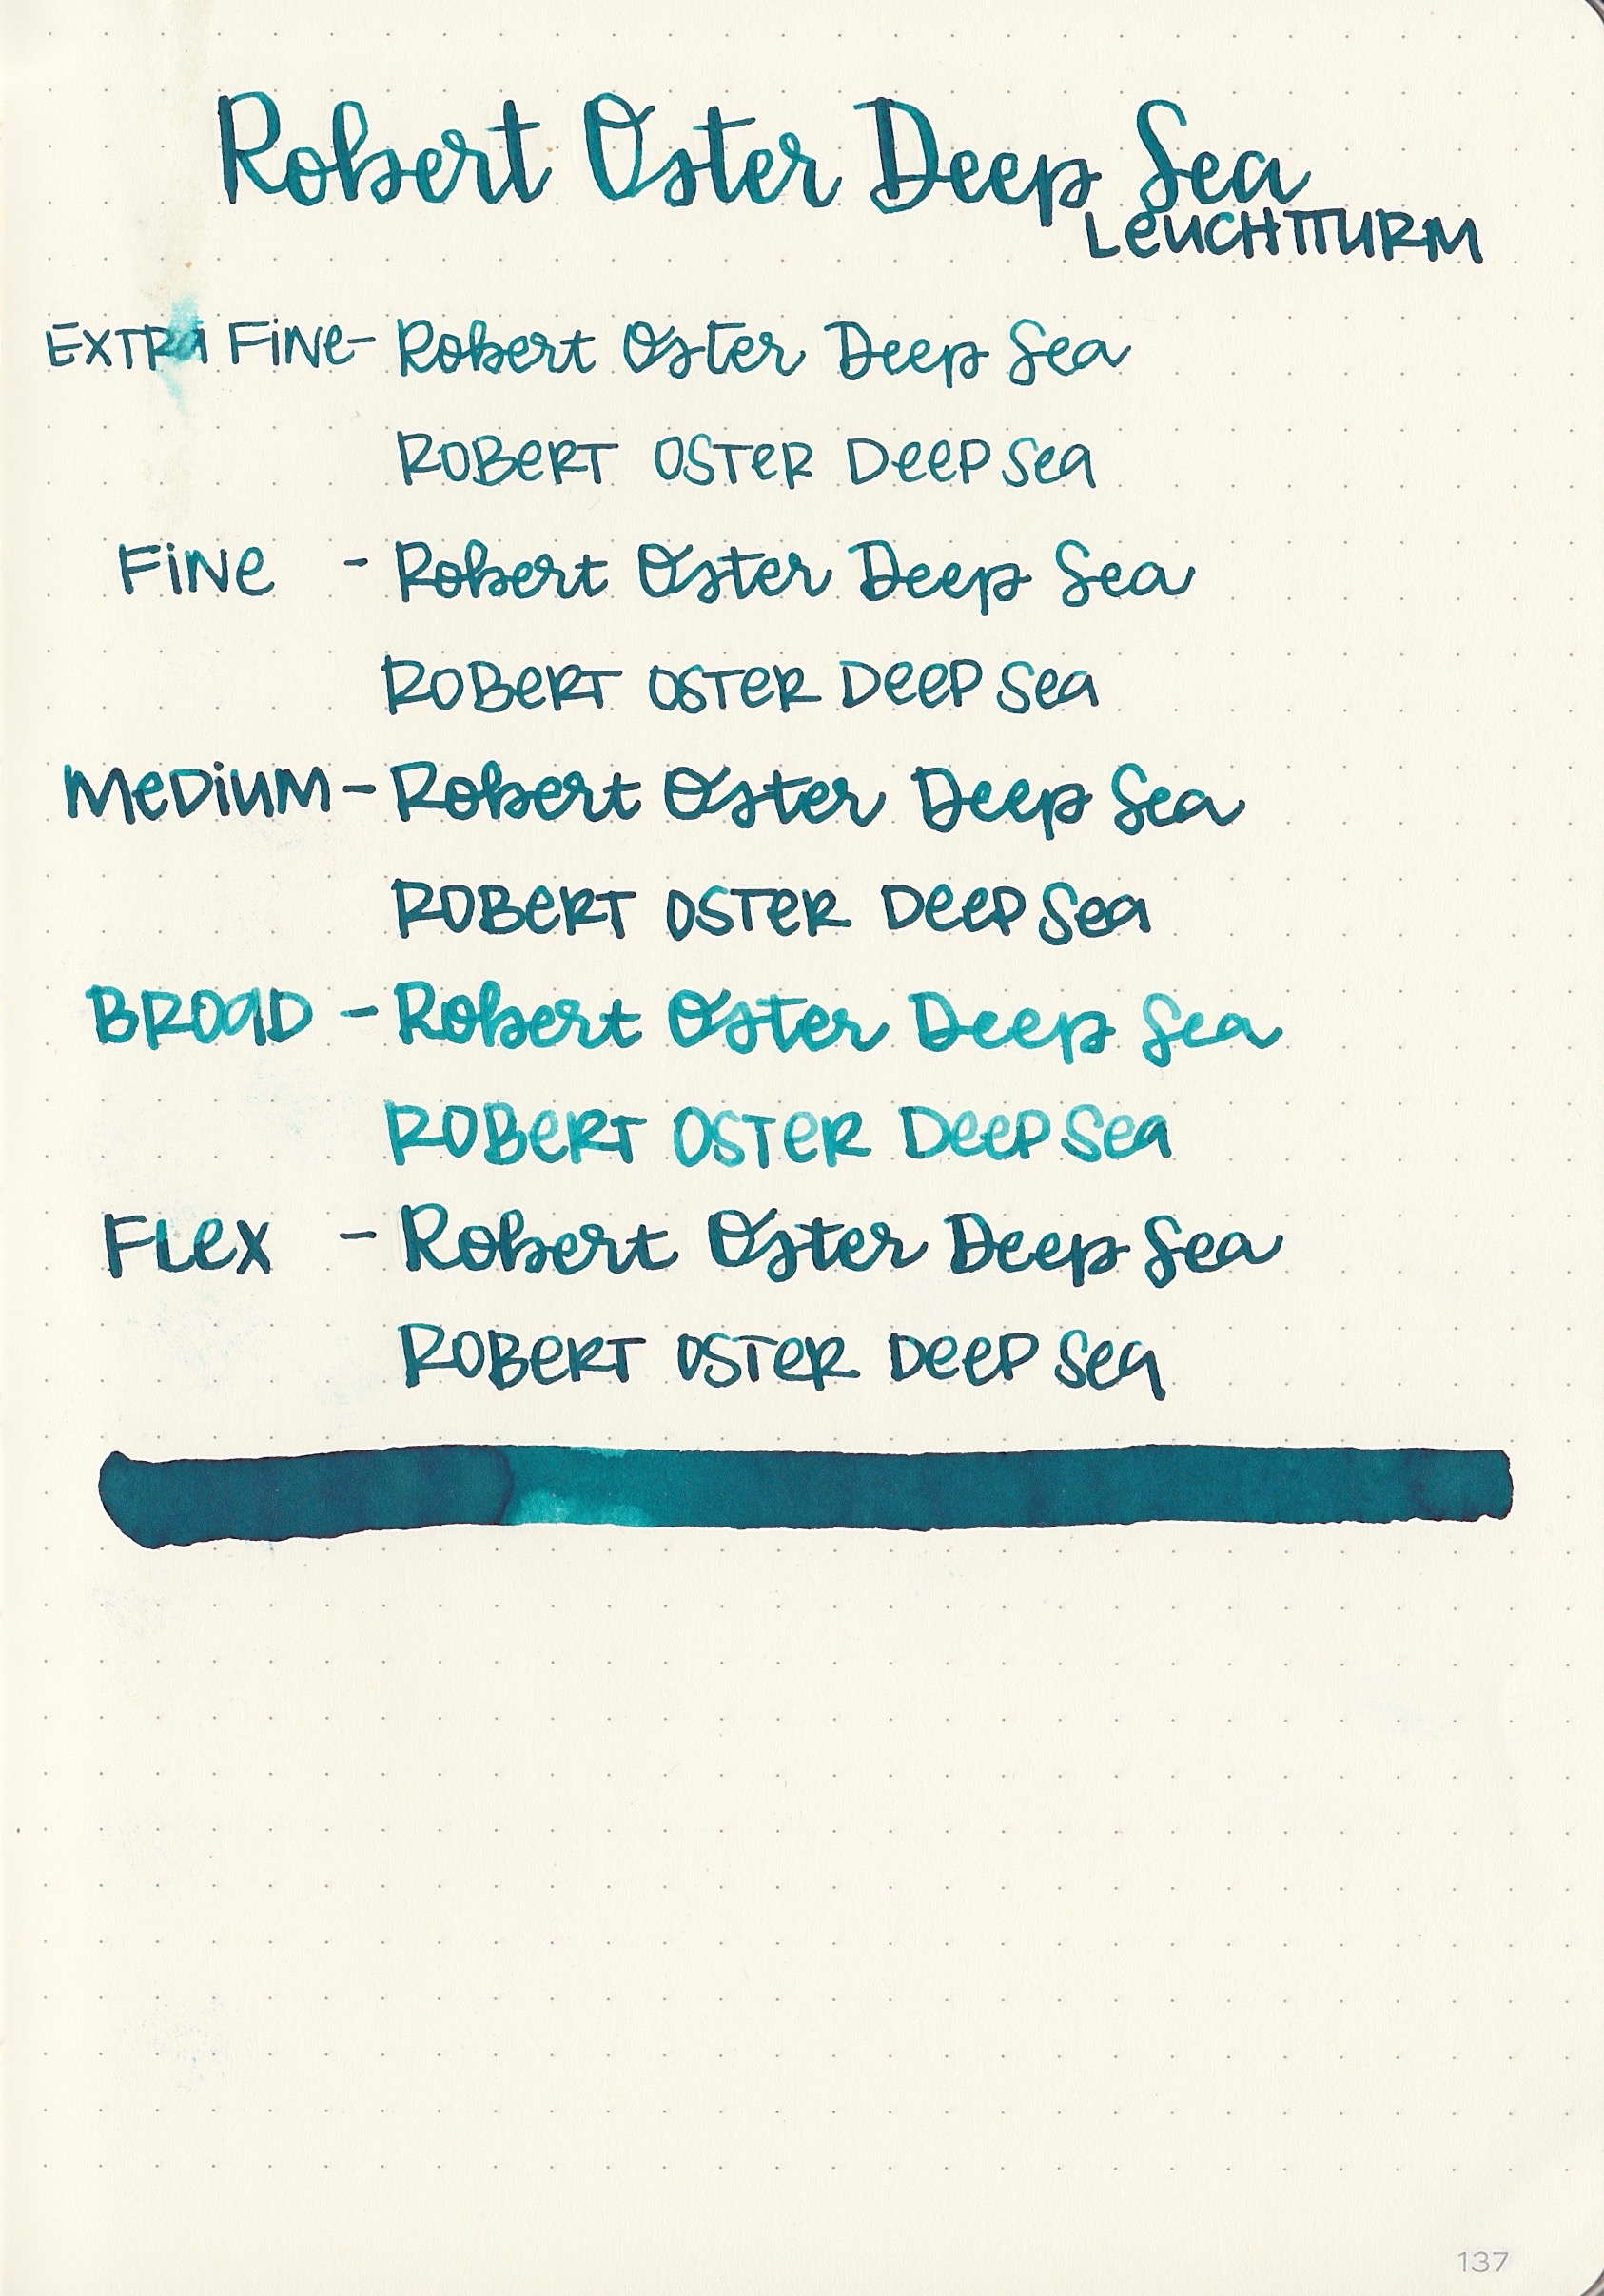 Robert Oster Deep Sea
LEUCHTTURM
EXTRA FINE- Robert Oster Deep Sea
ROBERT OSTER DEEP SEA
FINE - Robert Oster Deep Sea
ROBERT OSTER DEEP SEA
MEDIUM - Robert Oster Deep Sea
ROBERT OSTER DEEP SEA
BROAD - Robert Oster Deep Sea
ROBERT OSTER DEEP SEA
FLEX - Robert Oster Deep Sea
ROBERT OSTER DEEP SEA
137